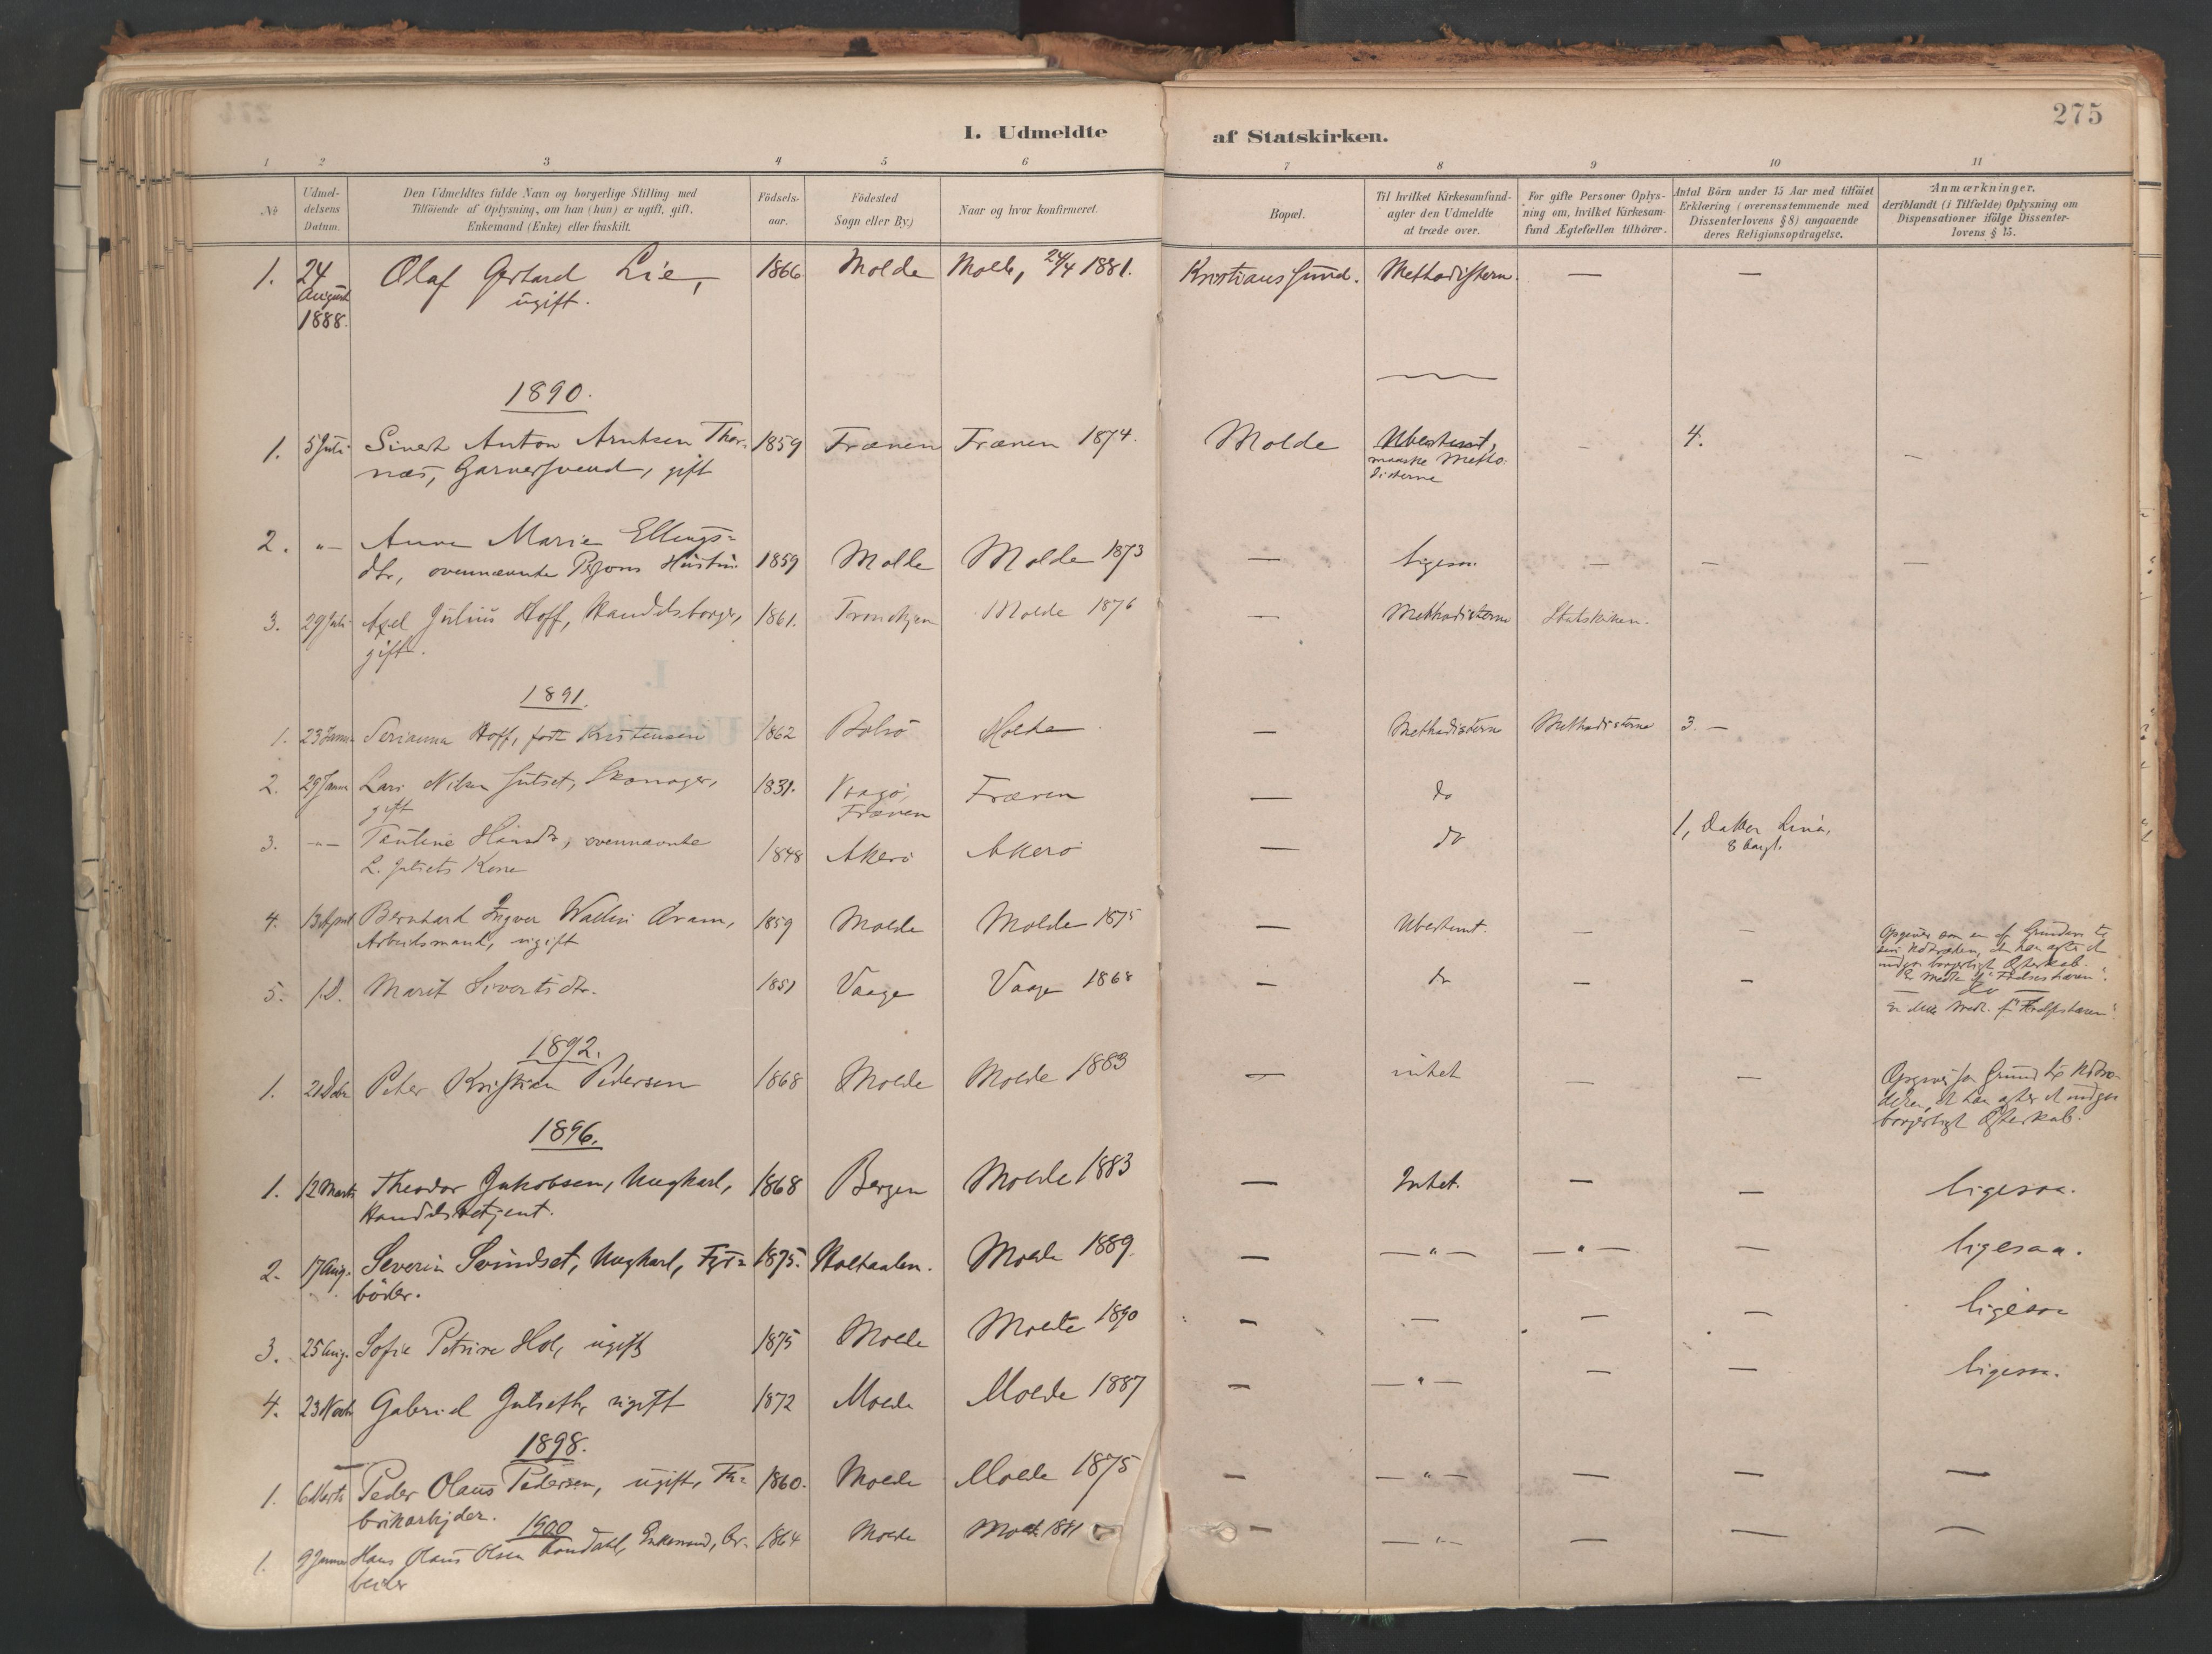 275
I. Udmeldte af Statskirken.
1 2 3 4 5 6 7 8 9 10 11
No
Udmel-
delsens
Datum.
Den Udmeldtes fulde Navn og borgerlige Stilling med
Tilföiende af Oplysning, om han (hun) er ugift, gift,
Enkemand (Enke) eller fraskilt.
Födsels-
aar.
Födested
Sogn eller By.)
Naar og hvor konfirmeret.
Bopæl.
Til hvilket Kirkesamfund-
agter den Udmeldte
at træde over.
For gifte Personer Oplys-
ning om, hvilket Kirkesam-
fund Ægtefællen tilhörer.
Antal Börn under 15 Aar med tilföiet
Erklæring (overensstemmende med
Dissenterlovens § 8) angaaende
deres Religionsopdragelse.
Anmærkninger,
deriblandt (i Tilfælde) Oplysning om
Dispensationer ifölge Dissenter-
lovens § 15.
1. 24 August 1888. Olaf Gerhard Lie, 1866 Molde Molde, 24/4 1881. Kristianssund. Methodistern. — —
ugift.
1890.
1. 5 Juli Sivert Anton Arntsen Thor- 1859 Frænen Frænen 1874. Molde Ubestemt, – 4. –
næs, Garversvend, gift maaske Metho-
disterne
2. -"- Anna Marie Ellings-
dtr, ovennævnte Persons Hustru 1859 Molde Molde 1873 — ligesaa — — —
3. 29 Juli Axel Julius Hoff, Handelsborger, 1861. Trondhjem Molde 1876 — Methodisterne Statskirken.
gift.
1891.
1. 23 Janu Serianna Hoff, født Kristensen 1862 Bolsö Molde — Methodisterne Methodisterne 3. –
2. 29 Janu Lars Nilsen Julset, Skomager, 1831. Frænen — do
gift Frænen
3. -"- Hansdtr, ovennævnte 1848 Akerö Akerö — do 1, Datter Lina,
L. Julsets Kone
4. 13 April Bernhard Ingver Wallin Aram, 1859 Molde Molde 1875 — Ubestemt. — —
Arbeidsmand, ugift
5. Marit Sivertsdtr. 1851 Vaage Vaage 1868 — do — —
do
1892.
1. Peter Kristian Pedersen 1868 Molde Molde 1883 — intet — — Opgiver som Grund til Udtræ-
delsen, at han agter at indgaa
borgerligt Ægteskab.
1896.
1. 12 Marts Theodor Jakobsen, Ungkarl, 1868 Bergen Molde 1883 — Intet. — — ligesaa.
Handelsbetjent.
2. 17 Aug. Severin Svindset, Ungkarl, Fyr- 1875. Holtaalen. Molde 1889. — —"— —"— — ligesaa.
böder.
3. 25 Aug. Sofie Petrine Hol, ugift 1875 Molde Molde 1890 — — — — ligesaa
4. 23 Novbr Gabriel Julseth, ugift 1872 Molde Molde 1887 — —"— — — ligesaa.
1898.
1. 6 Marts Peder Olaus Pedersen, ugift, Fa- 1860. Molde Molde 1875 — —"— — — —
brikarbejder.
1900
1. 9 Januar Hans Olaus Olsen Enkemand, Ar- 1864 Molde Molde 1881 — —"— — — —
beider